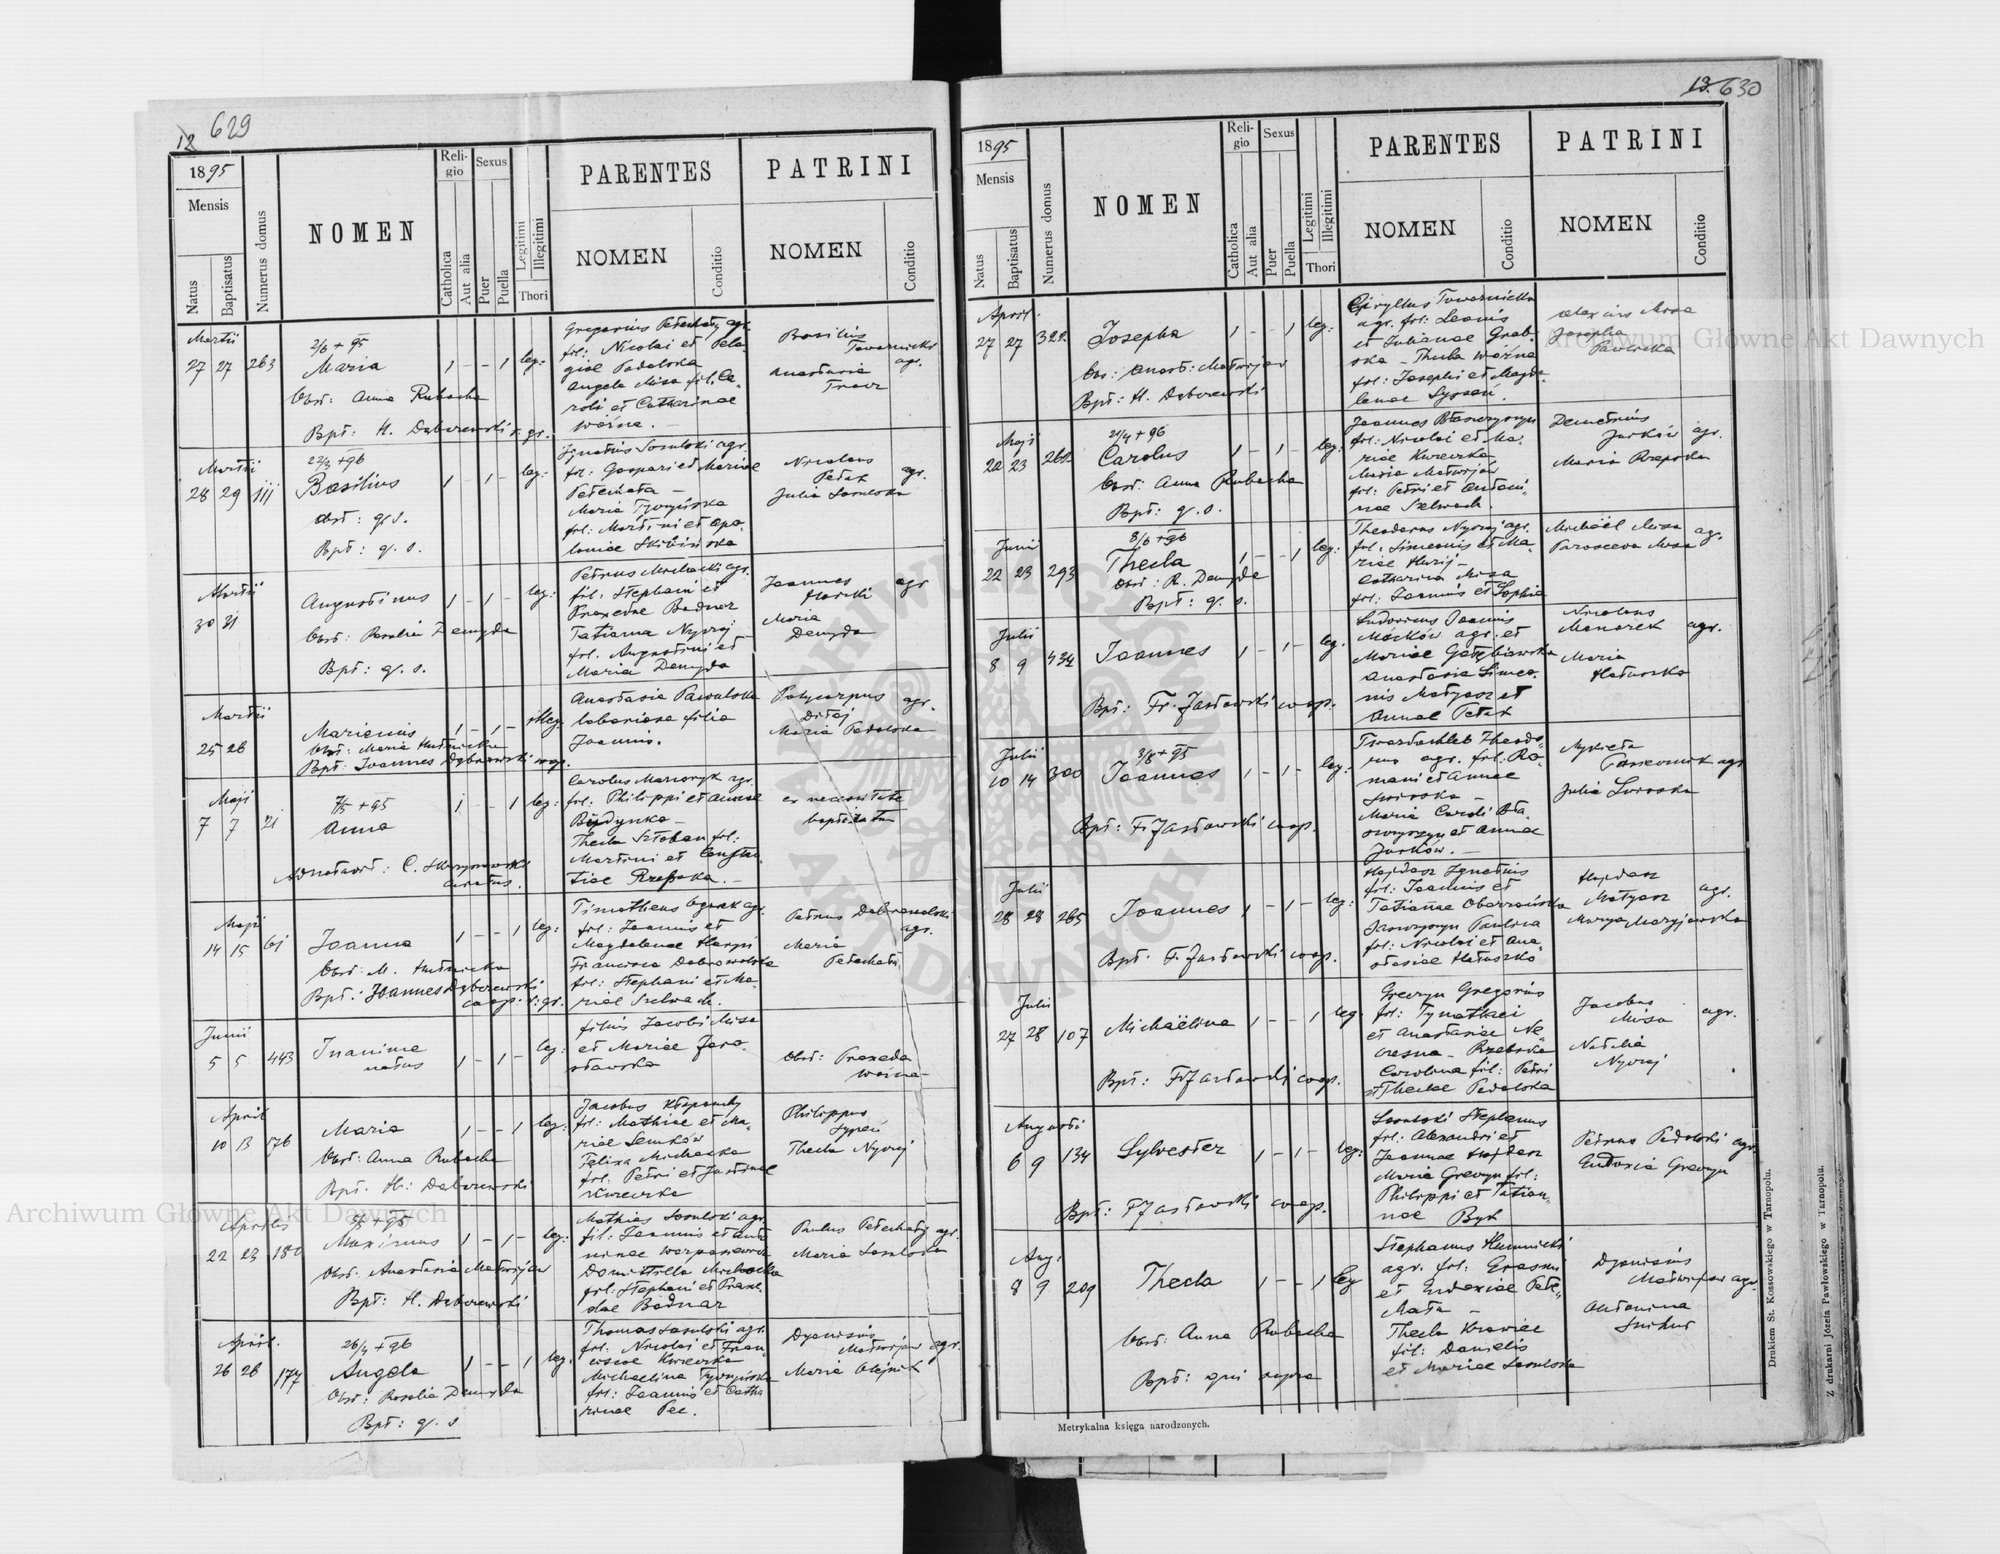 12 629
1895
Mensis
Natus
Baptisatus
Numerus domus
NOMEN
Religio
Catholica
Aut alia
Sexus
Puer
Puella
Legitimi
Illegitimi
Thori
PARENTES
NOMEN
Conditio
PATRINI
NOMEN
Conditio
Martii
27 27 263
2/6 + 95
Maria
1 - - 1 leg:
Obst: Anna Rubacha
Bpt: H. Dąbrowski r. gr.
Gregorius Petechaty agr.
fil: Nicolai et Pela-
giae Podolska
Angela Misa fil. Ca-
roli et Catharinae
Woźna.
Basilius
Towarnicki
agr.
Anastasia
Martii
28 29 111
22/3 + 96
Basilius
1 - 1 - leg:
Obst: q. s.
Bpt: q. s.
Ignatius Sosulski agr.
fil: Gaspari et Mariae
Maria
fil: Martini et Apo-
loniae Skibińska
Nicolaus
Petak
agr.
Julia Sosulska
Martii
30 31
Augustinus
1 - 1 - leg:
Obst: Rosalia Demyda
Bpt: q. s.
Petrus Michacki agr.
fil: Stephani et
Praxedae Bodnar
Tatianna Nyzoj
fil. Augustini et
Maria Demyda
Joannes
agr.
Maria
Demyda
Martii
25 26
Marianus
1 - 1 - illeg.
Obst: Maria Hutnicka
Bpt: Joannes Dąbrowski coop.
Anastasia Pawulska
laboriosa filia
Joannis.
Polycarpus agr.
Maria Podolska
Maji
7 7 21
7/5 + 95
Anna
1 - - 1 leg:
C. Skrzyszowski
curatus.
Carolus agr.
fil: Philippi et Annae
Budynka
Thecla Sztoban fil:
Martini et Constan-
tiae Rzepska.
ex necessitate
baptisata
Maji
14 15 61
Joanna
1 - - 1 leg:
Obst: M. Hutnicka
Bpt: Joannes Dąbrowski
coop. r. gr.
Timotheus Ogorek agr.
fil: Joannis et
Magdalenae
Francisca Dobrowolska
fil: Stephani et Ma-
riae Szlwach.
Petrus Dobrowolski
agr.
Maria
Petechata
Junii
5 5 443
Inanime
natus
1 - 1 - leg:
filius Jacobi Misa
et Mariae Jaro-
sławska
Obst: Praxeda
Woźna
April
10 13 176
Maria
1 - - 1 leg:
Obst: Anna Rubacha
Bpt. H: Dąbrowski
Jacobus
fil: Mathiae et Ma-
riae Semków
Felixa Michacka
fil: Petri et Justinae
Kurzewka
Philippus
Sysen
Thecla Nyzoj
Aprilis
22 23 180
Maximus
1 - 1 - leg:
Obst. Anastasia Matwijów
Bpt: H. Dąbrowski
Mathias Sosulski agr.
fil: Joannis et Anto-
ninae
Domicella Michacka
fil: Stephani et Praxe-
dae Bodnar
Paulus Petechaty agr.
Maria Sosulska
April.
26 26 177
26/4 + 96
Angela
1 - - 1 leg.
Obst: Rosalia Demyda
Bpt: q. s
Thomas Sosulski agr.
fil: Nicolai et Fran-
ciscae Kurzewka
Michaelina
fil: Joannis et Catha-
rinae Pec.
Dyonisius
Matwijów agr.
Maria Olejnik
13 630
1895
Mensis
Natus
Baptisatus
Numerus domus
NOMEN
Religio
Catholica
Aut alia
Sexus
Puer
Puella
Legitimi
Illegitimi
Thori
PARENTES
NOMEN
Conditio
PATRINI
NOMEN
Conditio
April.
27 27 322
Josepha
1 - - 1 leg:
Obs: Anast: Matwijów
Bpt: H. Dąbrowski
Cyryllus Towarnicki
agr. fil: Leonis
et Julianae Grab-
ska - Thecla Woźna
fil: Josephi et Magda-
lenae Sysen.
Misa
Josepha
Pawlicka
Maji
22 23 262
24/4 + 96
Carolus
1 - 1 - leg:
Obst: Anna Rubacha
Bpt: q. s.
Joannes Błaszczyszyn
fil: Nicolai et Ma-
riae Kurzewka
Maria Matwijów
fil: Petri et Antoni-
nae Szlwach.
Demetrius
Jurków agr.
Maria Rzepska
Junii
22 23 293
8/6 + 96
Thecla
1 - - 1 leg:
Obst: R. Demyda
Bpt: q. s.
Theodorus Nyzoj agr.
fil: Simeonis et Ma-
riae
Catharina Misa
fil: Joannis et Sophia
Michaël Misa
Parasceva Misa
ag.
Julii
8 9 434
Joannes
1 - 1 - leg.
Bpt: Fr. Jasłowski coop.
Ludovicus Joannis
Moćków agr. et
Mariae Gołębiowska
Anastasia Simeo-
nis Matyasz et
Annae Petak
Nicolaus
agr.
Maria
Hałuszka
Julii
10 14 300
3/8 + 95
Joannes
1 - 1 - leg:
Bpt: F. Jasłowski coop.
Theodo-
rus agr. fil. Ro-
mani et Annae
Maria Caroli Bła-
szczyszyn et Annae
Jurków.
agr
Julia
Julii
28 28 265
Joannes
1 - 1 - leg:
Bpt. F. Jasłowski coop.
Hajdasz Ignatius
fil: Joannis et
Tatianae
Paulina
fil: Nicolai et Ana-
stasiae Hałuszko
Hajdasz
Matyasz
agr.
Julii
27 28 107
Michaëlina
1 - - 1 leg.
Bpt: F. Jasłowski coop.
Greszyn Gregorius
fil: Tymothei
et Anastasiae
Carolina fil: Petri
et Theclae Podolska
Jacobus
Misa
agr.
Natalia
Nyzoj
Augusti
6 9 134
Sylvester
1 - 1 - leg:
Bpt: F. Jasłowski coop.
Sosulski Stephanus
fil: Alexandri et
Joannae Hajdasz
Maria Greszyn fil:
Philippi et Tatian-
nae Byk
Petrus Podolski agr.
Eudoxia Greszyn
Aug:
8 9 209
Thecla
1 - - 1 leg
Obst: Anna Rubacha
Bpt: qui supra
Stephanus Humnicki
agr. fil: Erasmi
et Eudoxiae Pete-
Thecla Krawiec
fil: Danielis
et Mariae Sosulska
Dyonisius
Matwijów agr.
Antonina
Metrykalna księga narodzonych.
Drukiem St. Kossowskiego w Tarnopolu.
Z drukarni Józefa Pawłowskiego w Tarnopolu.
Archiwum Główne Akt Dawnych
Archiwum Główne Akt Dawnych
ARCHIWUM GŁÓWNE AKT DAWNYCH